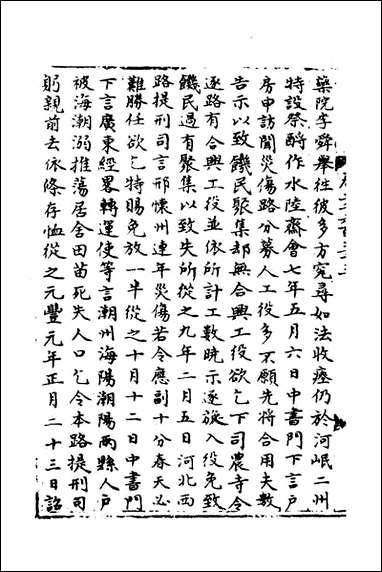 藥院李舜舉往彼多方寃尋如法收瘞仍於河岷二州
特設祭酹作水陸齋會七年五月六日中書門下言户
房申訪聞災傷路分募人工役多不願先將合用夫數
告示以致饑民聚集却無合興工役欲乞下司農寺令
逐路有合興工役並依所計工數曉示逐旋入役免致
饑民過有聚集以致失所從之九年二月五日河北西
路提刑司言邢懷州連年災傷若令應副十分春夫必
難勝任欲乞特賜免放一半從之十月十二日中書門
下言廣東經畧轉運使等言潮州海陽潮陽兩縣人户
被海潮溺推蕩居舍田苗死失人口乞令本路提刑司
躬親前去依條存恤從之元豐元年正月二十三日詔